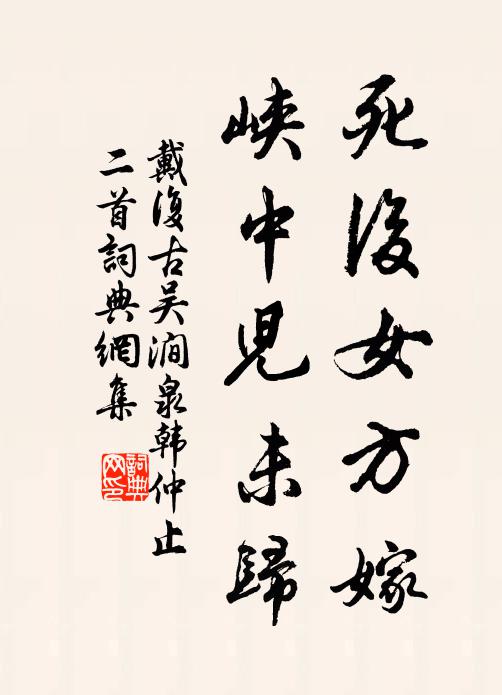 死後女方嫁
峽中兒未歸
戴復古吴澗泉韩仲止
二首詞典網集
詞典
网印